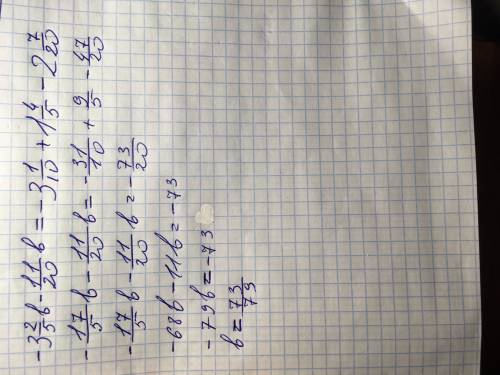 -3 2/5 b - 11/20 b = -3 1/10 + 1 4/5 - 2 7/20
-17/5 b - 11/20 b = -31/10 + 9/5 - 47/20
-17/5 b - 11/20 b = -73/20
-68b - 11b = -73
-79b = -73
b = 73/79